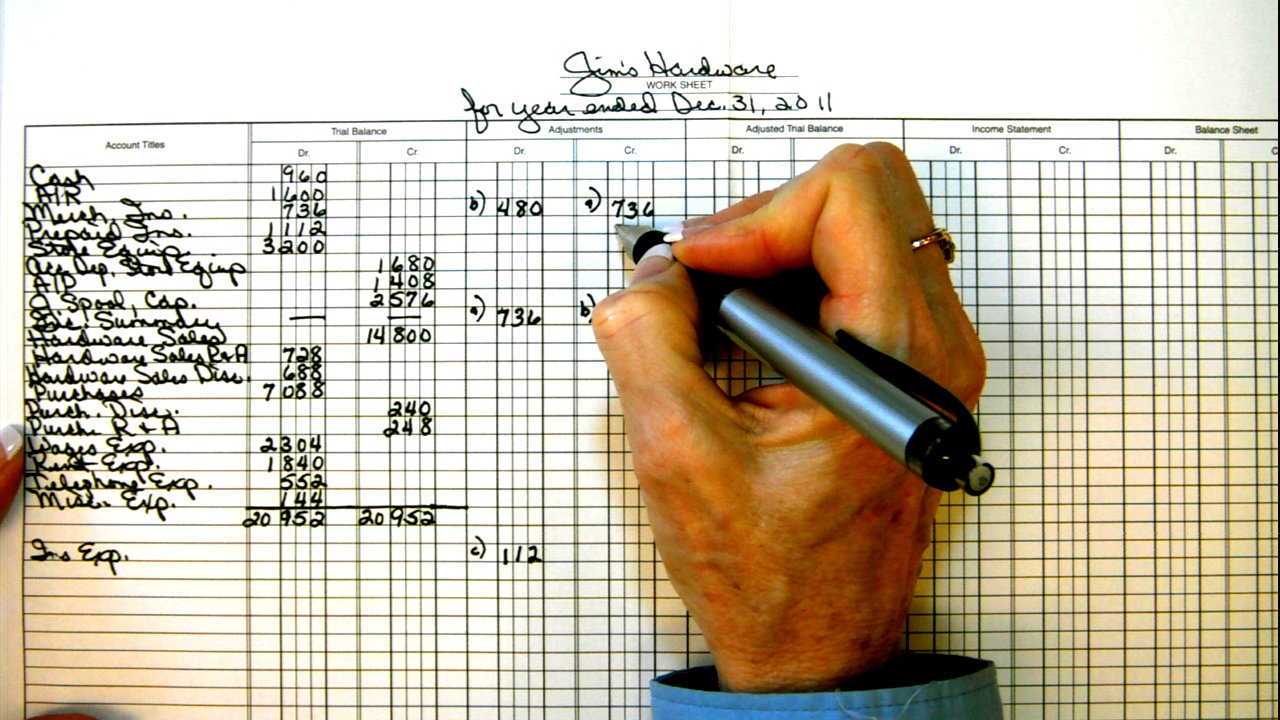 Jim's Hardware
WORK SHEET
for year ended Dec. 31, 2011
Account Titles Trial Balance Adjustments Adjusted Trial Balance Income Statement Balance Sheet
Dr. Cr. Dr. Cr. Dr. Dr. Cr. Dr. C
Cash 960
A/R 1600
Merch. Ins. 736 b) 480 a) 736
Prepaid Ins. 1112
Store Equip. 3200
Acc Dep, Store Equip 1680
A/P 1408
O. Spool, Cap. 2576
Summary — — a) 736 b)
Hardware Sales 14800
Hardware Sales R&A 728
Hardware Sales Disc. 688
Purchases 7088
Purch. Disc. 240
Purch. R & A 248
Wages Exp. 2304
Rent Exp. 1840
Telephone Exp. 552
Misc. Exp. 144
20952 20952
Ins Exp. c) 112